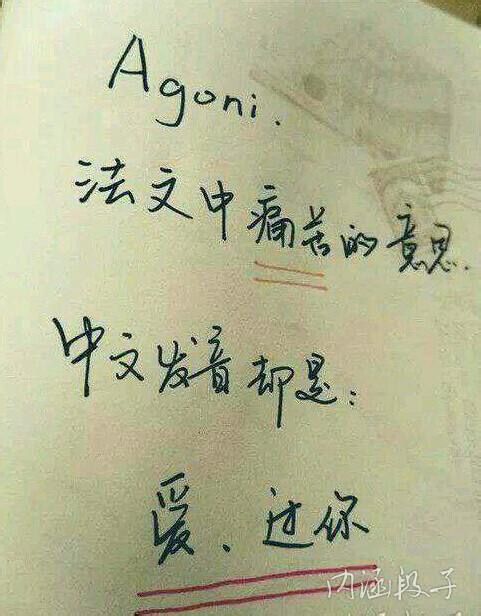 Agoni.
法文中痛苦的意思.
中文发音却是：
爱、过你
内涵段子